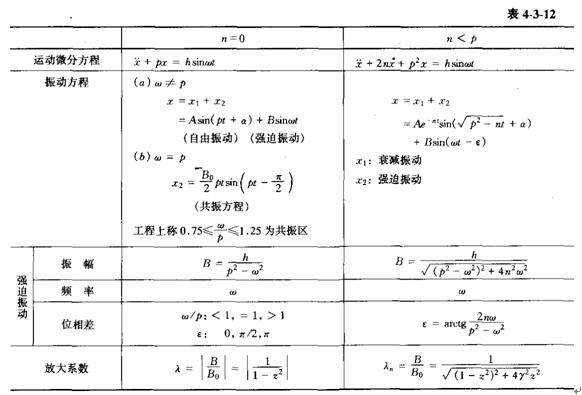 表 4-3-12
n=0
n < p
运动微分方程
ẍ + px = hsinωt
ẍ + 2nẋ + p²x = hsinωt
振动方程
(a) ω ≠ p
x = x₁ + x₂
= Asin(pt + α) + Bsinωt
(自由振动) (强迫振动)
(b) ω = p
x₂ = B₀/2 ptsin(pt − π/2)
(共振方程)
工程上称 0.75≤ω/p≤1.25 为共振区
x = x₁ + x₂
= Ae⁻ⁿᵗsin(√(p² − nt) + α)
+ Bsin(ωt − ε)
x₁: 衰减振动
x₂: 强迫振动
强迫振动
振 幅
B = h/(p² − ω²)
B = h/√((p² − ω²)² + 4n²ω²)
频 率
ω
ω
位相差
ω/p: < 1, = 1, > 1
ε: 0, π/2, π
ε = arctg 2nω/(p² − ω²)
放大系数
λ = |B/B₀| = |1/(1 − z²)|
λₙ = B/B₀ = 1/√((1 − z²)² + 4γ²z²)